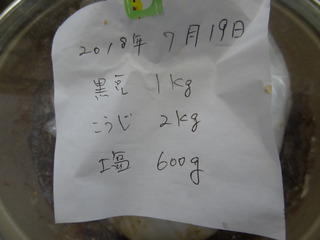 2018年 7月19日
黒豆 1kg
こうじ 2kg
塩 600g